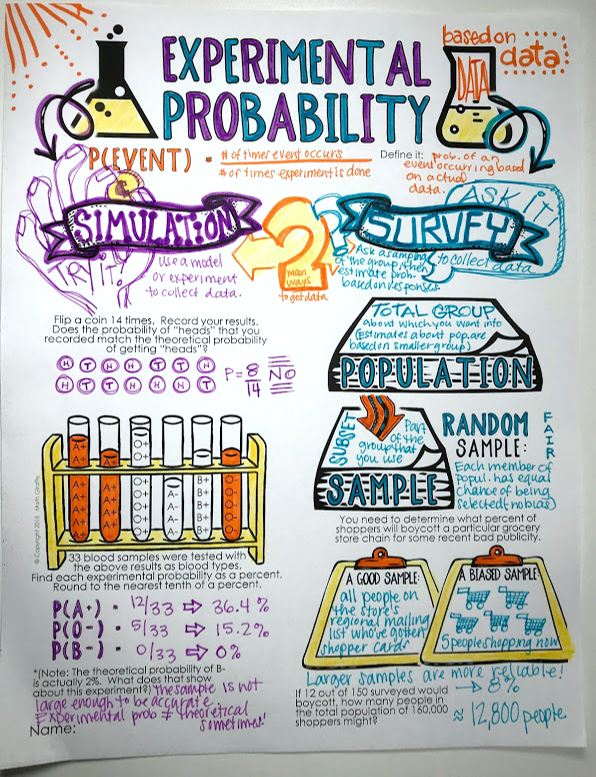 based on
data:
EXPERIMENTAL
PROBABILITY
DATA
P(EVENT) = # of times event occurs
# of times experiment is done
Define it: prob. of an
event occurring based
on actual
data.
SIMULATION
TRY IT!
Use a model
or experiment
to collect data.
2
main
ways
to get data
SURVEY
ASK IT!
Ask a sampling
of the group, then
estimate prob.
based on responses.
to collect data
Flip a coin 14 times. Record your results.
Does the probability of "heads" that you
recorded match the theoretical probability
of getting "heads"?
P = 8
14
NO
TOTAL GROUP
about which you want info
(Estimates about pop. are
based on smaller group)
POPULATION
SUBSET
Part
of the
group that
you use
SAMPLE
RANDOM
SAMPLE:
FAIR
Each member of
popul. has equal
chance of being
selected (no bias)
You need to determine what percent of
shoppers will boycott a particular grocery
store chain for some recent bad publicity.
A+ A+ O+ A- B+ O-
A+ A+ O+ A- B+ O-
A+ A+ O+ A- B+ O-
© Copyright 2018 Math Giraffe
33 blood samples were tested with
the above results as blood types.
Find each experimental probability as a percent.
Round to the nearest tenth of a percent.
P(A+) = 12/33 ⇨ 36.4%
P(O-) = 5/33 ⇨ 15.2%
P(B-) = 0/33 ⇨ 0%
*(Note: The theoretical probability of B-
is actually 2%. What does that show
about this experiment?) the sample is not
large enough to be accurate.
Experimental prob ≠ theoretical
sometimes!
Name:
A GOOD SAMPLE:
all people on
the store's
regional mailing
list who've gotten
shopper cards
A BIASED SAMPLE:
5 people shopping now
Larger samples are more reliable!
If 12 out of 150 surveyed would
boycott, how many people in
the total population of 160,000
shoppers might?
→ 8%
≈ 12,800 people.